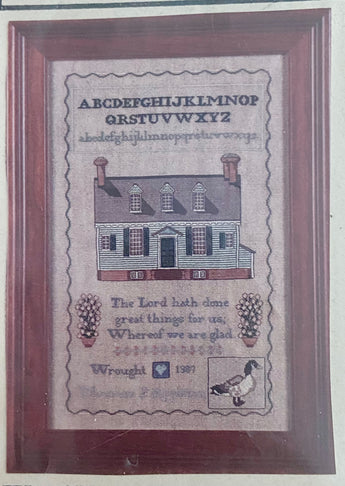 ABCDEFGHIJKLMNOP
QRSTUVWXYZ
abcdefghijklmnopqrstuvwxyz
The Lord hath done
great things for us;
Whereof we are glad
Wrought 1987